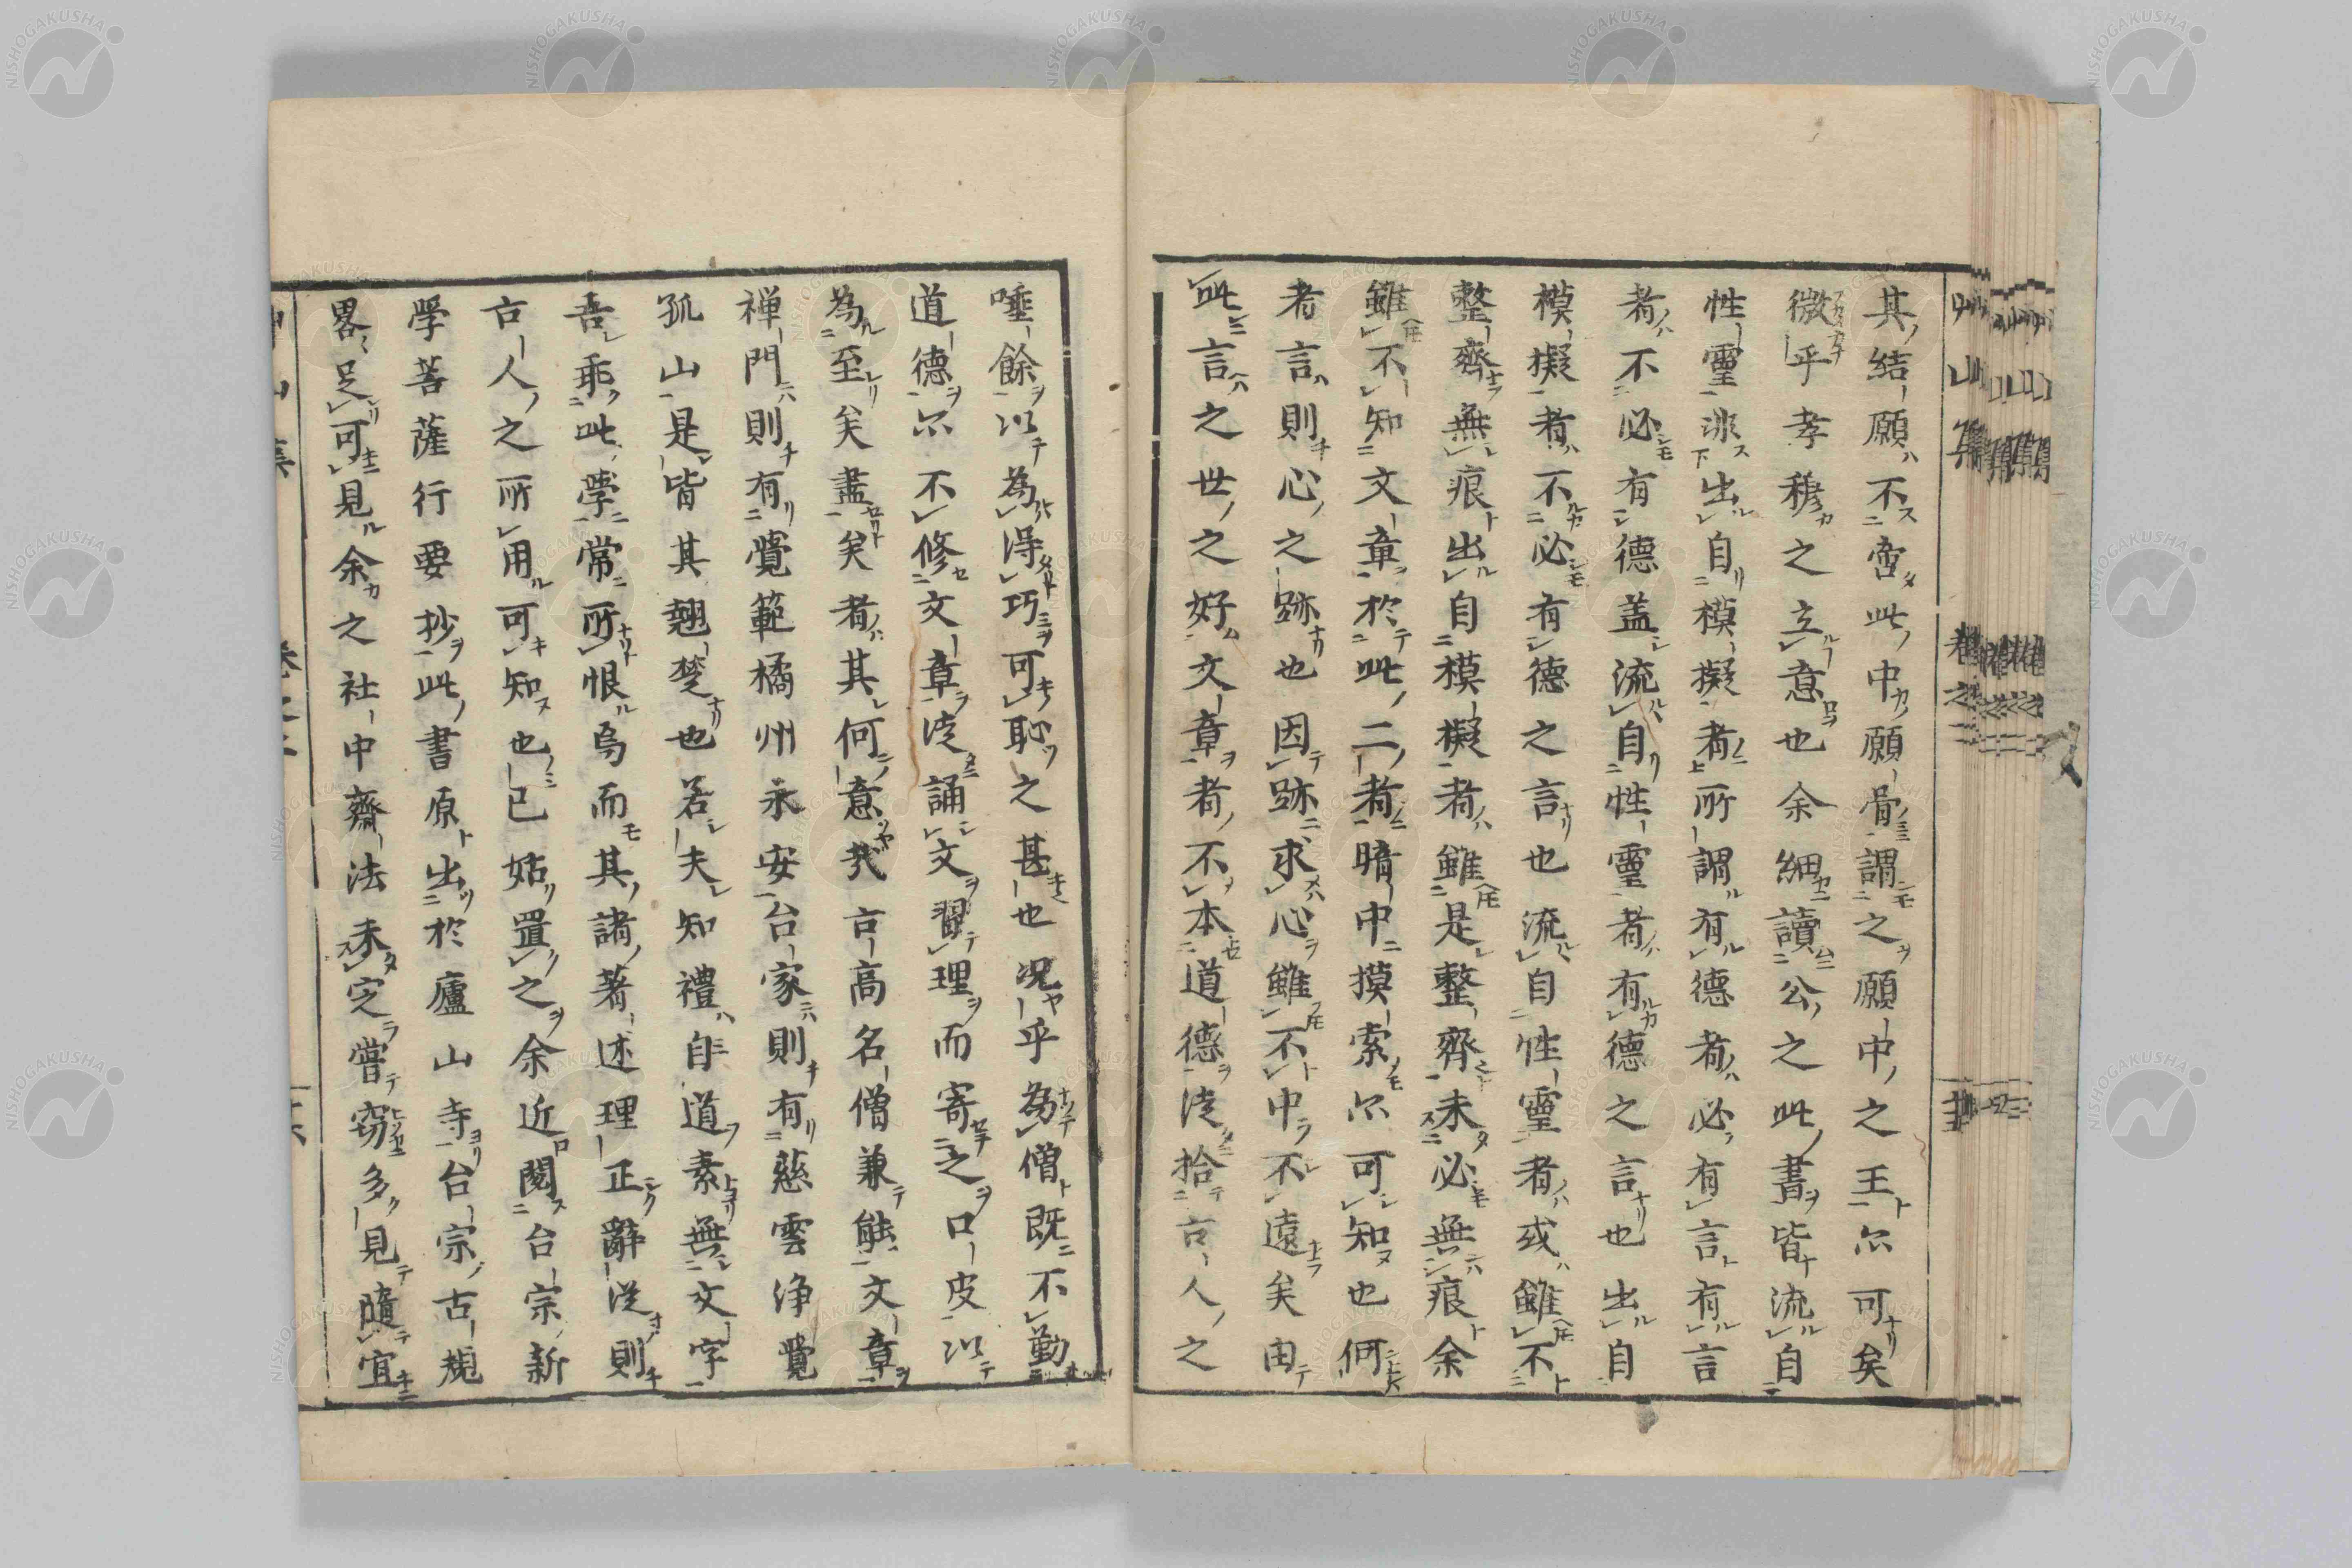 其結願不啻此中願骨謂之願中之王尒可矣
微乎孝穆之立意也余細讀公之此書皆流自
性靈泳出自模擬者所謂有德者必有言有言
者不必有德盖流自性靈者有德之言也出自
模擬者不必有德之言也流自性靈者或雖不
整齊無痕出自模擬者雖是整齊未必無痕余
雖不知文章於此二者暗中摸索尒可知也何
者言則心之跡也因跡求心雖不中不遠矣由
此言之世之好文章者不本道德徒拾古人之
唾餘以為得巧可恥之甚也況乎為僧既不勤
道德尒不修文章徒誦文習理而寄之口皮以
為至矣盡矣者其何意哉古高名僧兼能文章
禅門則有覺範橘州永安台家則有慈雲淨覺
孤山是皆其翹楚也若夫知禮自道素無文字
吾乖此學常所恨焉而其諸著述理正辭従則
古人之所用可知也已姑置之余近閱台宗新
學菩薩行要抄此書原出於廬山寺台宗古規
畧足可見余之社中齋法未定嘗窃多見隨宜
NISHOGAKUSHA